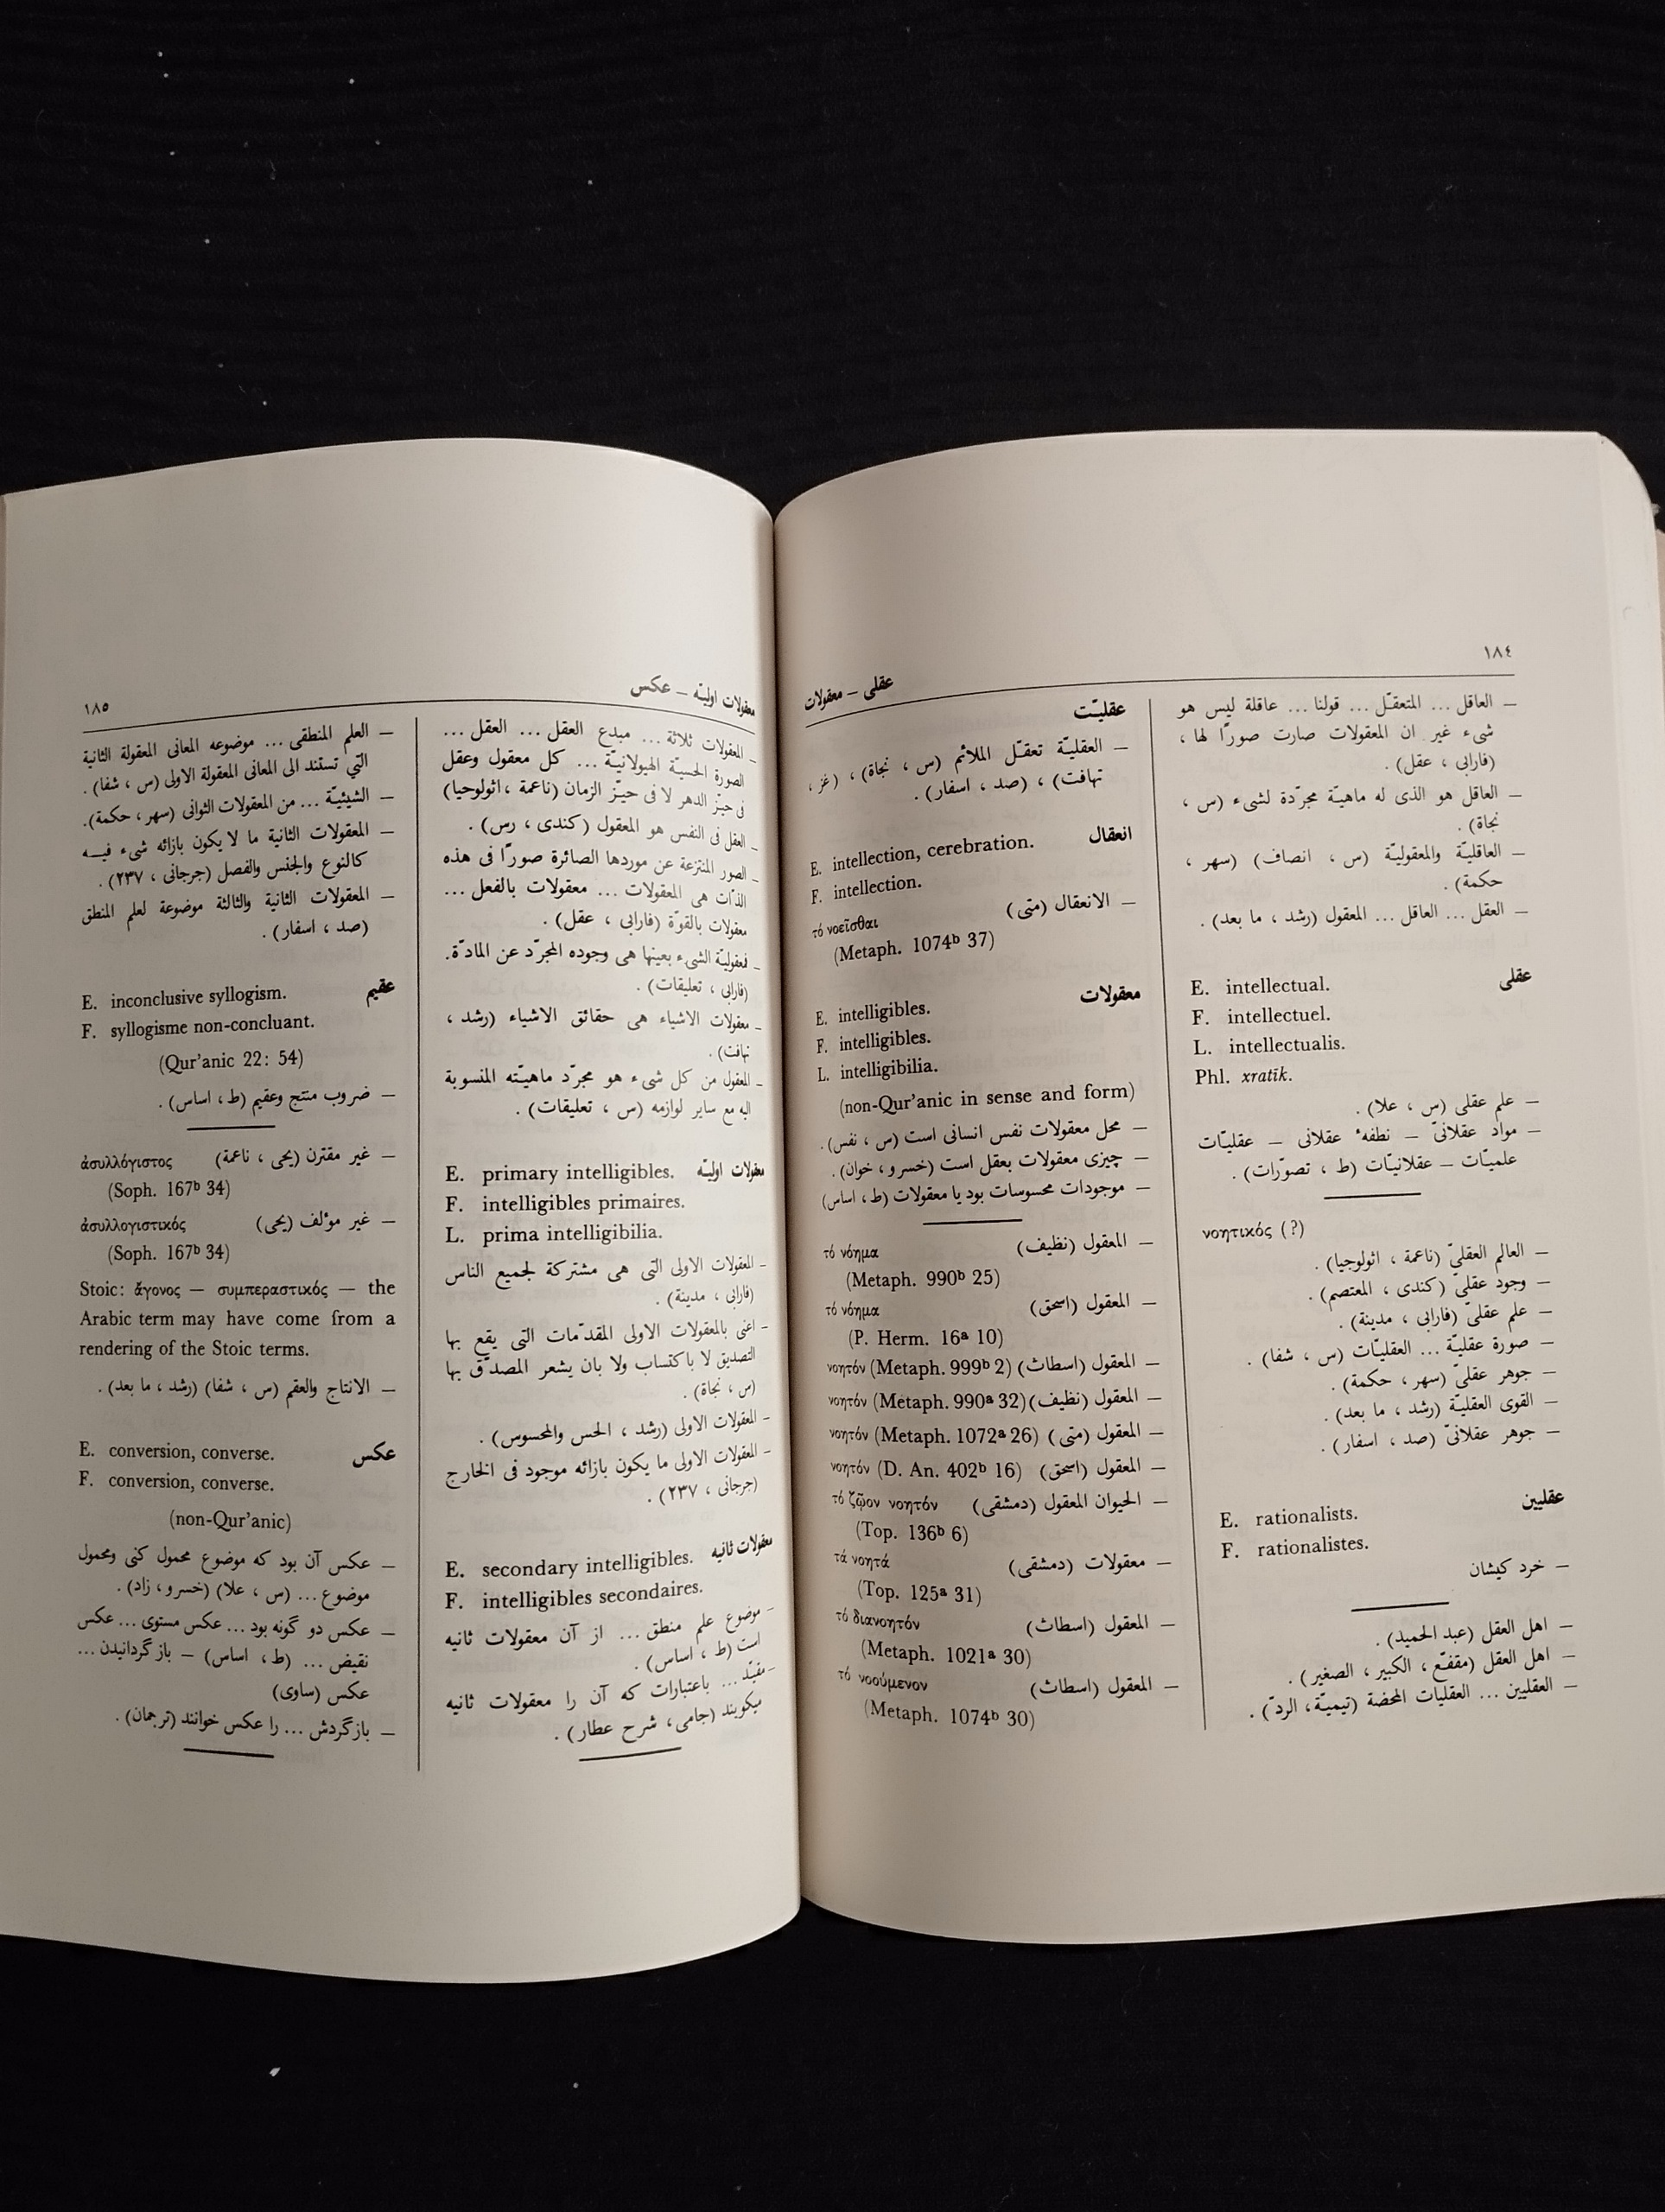 ١٨٤
عقلی – معقولات
– العاقل ... المتعقّل ... قولنا ... عاقلة ليس هو
شیء غير ان المعقولات صارت صورًا لها ،
(فارابی ، عقل) .
– العاقل هو الذی له ماهيّة مجرّدة لشیء (س ،
نجاة) .
– العاقليّة والمعقوليّة (س ، انصاف) (سهر ،
حكمة) .
– العقل ... العاقل ... المعقول (رشد ، ما بعد) .
عقلی
E. intellectual.
F. intellectuel.
L. intellectualis.
Phl. xratīk.
– علم عقلی (س ، علا) .
– مواد عقلانیّ – نطفهٔ عقلانی – عقليّات
علميّات – عقلانيّات (ط ، تصوّرات) .
νοητικός (?)
– العالم العقلیّ (ناعمة ، اثولوجيا) .
– وجود عقلیّ (كندی ، المعتصم) .
– علم عقلیّ (فارابی ، مدينة) .
– صورة عقليّة ... العقليّات (س ، شفا) .
– جوهر عقلیّ (سهر ، حكمة) .
– القوی العقليّة (رشد ، ما بعد) .
– جوهر عقلانیّ (صد ، اسفار) .
عقليين
E. rationalists.
F. rationalistes.
– خرد كيشان
– اهل العقل (عبد الحميد) .
– اهل العقل (مقفّع ، الكبير ، الصغير) .
– العقليين ... العقليات المحضة (تيميّة ، الردّ) .
عقليّت
– العقليّة تعقّل الملائم (س ، نجاة) ، (غز ،
تهافت) ، (صد ، اسفار) .
انعقال
E. intellection, cerebration.
F. intellection.
– الانعقال (متی) τό νοεῖσθαι
(Metaph. 1074ᵇ 37)
معقولات
E. intelligibles.
F. intelligibles.
L. intelligibilia.
(non-Qur'anic in sense and form)
– محل معقولات نفس انسانی است (س ، نفس) .
– چيزی معقولات بعقل است (خسرو ، خوان) .
– موجودات محسوسات بود يا معقولات (ط ، اساس)
– المعقول (نظيف) τό νόημα
(Metaph. 990ᵇ 25)
– المعقول (اسحق) τό νόημα
(P. Herm. 16ᵃ 10)
– المعقول (اسطاث) νοητόν (Metaph. 999ᵇ 2)
– المعقول (نظيف) νοητόν (Metaph. 990ᵃ 32)
– المعقول (متی) νοητόν (Metaph. 1072ᵃ 26)
– المعقول (اسحق) νοητόν (D. An. 402ᵇ 16)
– الحيوان المعقول (دمشقی) τό ζῷον νοητόν
(Top. 136ᵇ 6)
– معقولات (دمشقی) τά νοητά
(Top. 125ᵃ 31)
– المعقول (اسطاث) τό διανοητόν
(Metaph. 1021ᵃ 30)
– المعقول (اسطاث) τό νοούμενον
(Metaph. 1074ᵇ 30)
معقولات اوليّه – عكس
١٨٥
– المعقولات ثلاثة ... مبدع العقل ... العقل ...
الصورة الحسيّة الهيولانيّة ... كل معقول وعقل
فی حيّز الدهر لا فی حيّز الزمان (ناعمة ، اثولوجيا)
– العقل فی النفس هو المعقول (كندی ، رس) .
– الصور المنتزعة عن موردها الصائرة صورًا فی هذه
الذات هی المعقولات ... معقولات بالفعل ...
معقولات بالقوّة (فارابی ، عقل) .
– فمعقوليّة الشیء بعينها هی وجوده المجرّد عن المادّة .
(فارابی ، تعليقات) .
– معقولات الاشياء هی حقائق الاشياء (رشد ،
تهافت) .
– المعقول من كل شیء هو مجرّد ماهيّته المنسوبة
اليه مع ساير لوازمه (س ، تعليقات) .
معقولات اوليّه
E. primary intelligibles.
F. intelligibles primaires.
L. prima intelligibilia.
– المعقولات الاولی التی هی مشتركة لجميع الناس
(فارابی ، مدينة) .
– اعنی بالمعقولات الاولی المقدّمات التی يقع بها
التصديق لا باكتساب ولا بان يشعر المصدّق بها
(س ، نجاة) .
– المعقولات الاولی (رشد ، الحس والمحسوس) .
– المعقولات الاولی ما يكون بازائه موجود فی الخارج
(جرجانی ، ٢٣٧) .
معقولات ثانيه
E. secondary intelligibles.
F. intelligibles secondaires.
– موضوع علم منطق ... از آن معقولات ثانيه
است (ط ، اساس) .
– مقيّد ... باعتبارات كه آن را معقولات ثانيه
ميگويند (جامی ، شرح عطار) .
– العلم المنطقی ... موضوعه المعانی المعقولة الثانية
التی تستند الی المعانی المعقولة الاولی (س ، شفا) .
– الشيئيّة ... من المعقولات الثوانی (سهر ، حكمة) .
– المعقولات الثانية ما لا يكون بازائه شیء فيه
كالنوع والجنس والفصل (جرجانی ، ٢٣٧) .
– المعقولات الثانية والثالثة موضوعة لعلم المنطق
(صد ، اسفار) .
عقيم
E. inconclusive syllogism.
F. syllogisme non-concluant.
(Qur'anic 22: 54)
– ضروب منتج وعقيم (ط ، اساس) .
– غير مقترن (يحی ، ناعمة) ἀσυλλόγιστος
(Soph. 167ᵇ 34)
– غير مؤلف (يحی) ἀσυλλογιστικός
(Soph. 167ᵇ 34)
Stoic: ἄγονος — συμπεραστικός — the
Arabic term may have come from a
rendering of the Stoic terms.
– الانتاج والعقم (س ، شفا) (رشد ، ما بعد) .
عكس
E. conversion, converse.
F. conversion, converse.
(non-Qur'anic)
– عكس آن بود كه موضوع محمول كنی ومحمول
موضوع ... (س ، علا) (خسرو ، زاد) .
– عكس دو گونه بود ... عكس مستوی ... عكس
نقيض ... (ط ، اساس) – باز گردانيدن ...
عكس (ساوی)
– بازگردش ... را عكس خوانند (ترجمان) .